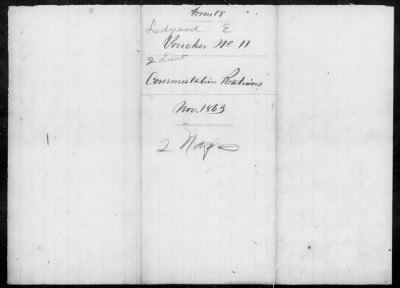 Form 18
Ledyard E
Voucher No 11
2 Lieut
Commutation Rations
Nov. 1863
2